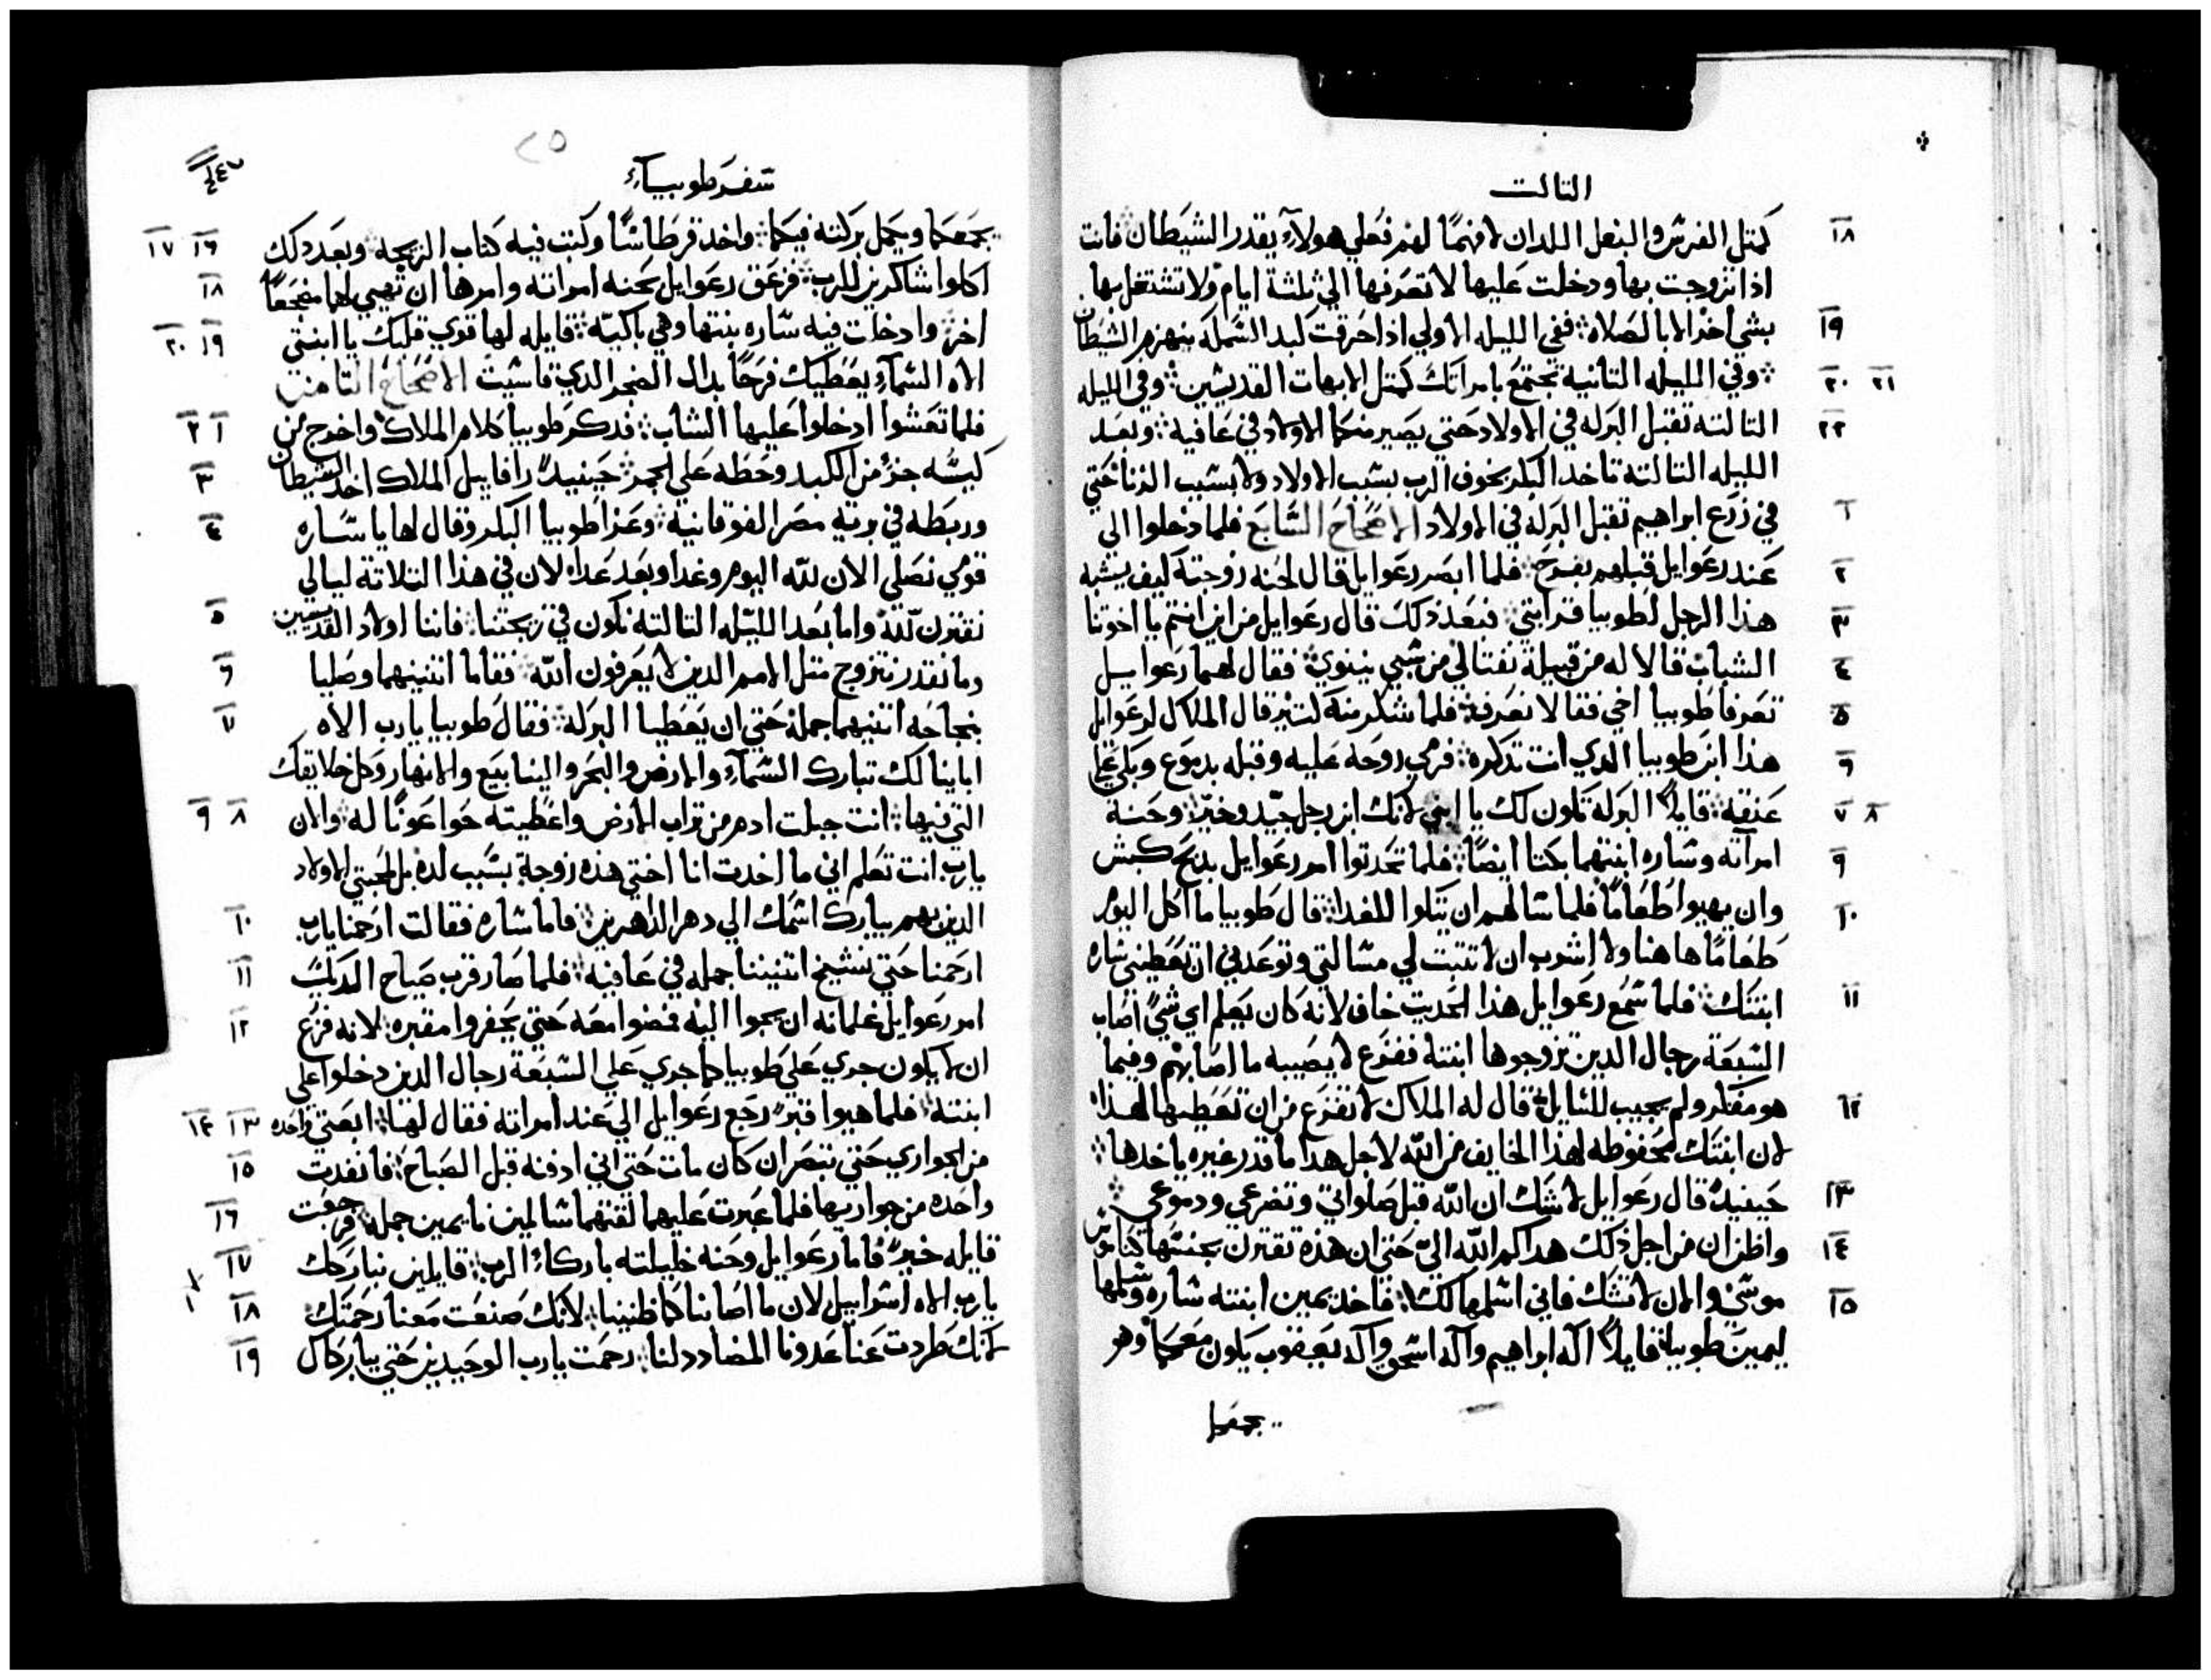 التالت
١٨ كمتل الفرش والبغل اللدان لا فهمًا لهم فعلي هولآء يقدر الشيطان فانت
اذا تزوجت بها ودخلت عليها لا تعرفها الي ثلثة ايام ولا تشتغل بها
١٩ بشي اخر الا بالصلاه ففي الليله الاولي اذا حرقت كبد السمكه ينهزم الشيطان
٢٠ ٢١ وفي الليله التانية تجتمع بامراتك كمتل الابهات القديسين وفي الليله
٢٢ التالته تقبل البركه في الاولاد حتي يصير منكما الاولاد في عافية وبعد
الليله التالته تاخد البكر بخوف الرب بسبب الاولاد ولا بسبب الزنا حتي
١ في زرع ابراهيم تقبل البركه في الاولاد الاصحاح السابع فلما دخلوا الي
٢ عند رعوايل قبلهم بفرح فلما ابصر رعوايل قال لحنه زوجته كيف يشبه
٣ هذا الرجل لطوبيا قرابتي فبعد دلك قال رعوايل من اين انتم يا اخوتنا
٤ الشباب قالا له من قبيلة نفتالي من سبي نينوي فقال لهما رعوايل
٥ تعرفا طوبيا اخي فقالا نعرفه فلما شكر منه كتير قال الملاك لرعوايل
٦ هذا ابن طوبيا الدي انت تدكره فرمي روحه عليه وقبله بدموع وبكي علي
٧ ٨ عنقه قايلاً البركه تكون لك يا ابني لانك ابن رجل جيد وخير وحنه
٩ امرآته وساره ابنتهما بكتا ايضًا فلما تحدتوا امر رعوايل بدبح كبش
١٠ وان يهيوا طعامًا فلما سالهم ان يتكوا للغدا قال طوبيا ما آكل اليوم
طعامًا هاهنا ولا اشرب ان لا تتبت لي مسالتي وتوعدني ان تعطيني ساره
١١ ابنتك فلما سمع رعوايل هذا الحديت خاف لانه كان يعلم اي شي اصاب
السبعة رجال الدين تزوجوها ابنته ففزع لا يصيبه ما اصابهم وفيما
١٢ هو مفكر ولم يجيب للسايل قال له الملاك لا تفزع من ان تعطيها لهذا
لان ابنتك محفوظه لهذا الخايف من الله لاجل هدا ما قدر غيره ياخدها
١٣ حينيد قال رعوايل لا شك ان الله قبل صلواتي وتضرعي ودموعي
١٤ واظن ان من اجل ذلك هداكم الله الي حتي ان هذه تقترن بجنسها كناموس
١٥ موسي والان لا تشك فاني اسلمها لك فاخد يمين ابنته ساره وسلمها
ليمين طوبيا قايلاً اله ابراهيم واله اسحق واله يعقوب يكون معكما وهو
يجمعكما
سفر طوبيآء
٢٤٧
٢٥
١٦ ١٧ يجمعكما ويكمل بركته فيكما واخد قرطاسًا وكتب فيه كتاب الزيجه وبعد دلك
١٨ اكلوا شاكرين للرب فزعق رعوايل لحنه امراته وامرها ان تهيي لهما مضجعًا
١٩ ٢٠ اخر وادخلت فيه ساره بنتها وهي باكيه قايله لها قوي قلبك يا ابنتي
الاه السمآء يعطيك فرحًا بدل الضجر الدي قاسيت الاصحاح التامن
١ ٢ فلما تعشوا ادخلوا عليها الشاب فدكر طوبيا كلام الملاك واخرج من
٣ كيسه جزء من الكبد وحطه علي الجمر حينيد رافاييل الملاك اخد الشيطان
٤ وربطه في برية مصر الفوقانية وعزا طوبيا البكر وقال لها يا ساره
قومي نصلي الان لله اليوم وغدا وبعد غدا لان في هذا التلاتة ليالي
٥ نقترن لله واما بعد الليله التالته نكون في زيجتنا فاننا اولاد القديسين
٦ وما نقدر نتزوج متل الامم الدين لا يعرفون الله فقاما اتنينهما وصليا
٧ بنجاحه اتنيهما جمله حتي ان يعطيا البركه فقال طوبيا يارب الاه
ابآينا لك تبارك السمآء والارض والبحر والينابيع والانهار وكل خلايقك
٨ ٩ التي فيها انت جبلت ادم من تراب الارض واعطيته حوا عونًا له والان
يارب انت تعلم اني ما اخدت انا اختي هذه زوجة بسبب لده بل لمحبتي الاولاد
١٠ الدين بهم يبارك اسمك الي دهر الداهرين فاما ساره فقالت ارحمنا يارب
١١ ارحمنا حتي نشيخ اتنيننا جمله في عافيه فلما صار قرب صياح الديك
١٢ امر رعوايل غلمانه ان يجوا اليه فمضوا معه حتي يحفروا مقبره لانه فزع
ان لا يكون جري علي طوبيا كما جري علي السبعة رجال الدين دخلوا علي
١٣ ١٤ ابنته فلما هيوا قبر رجع رعوايل الي عند امراته فقال لها ابعتي واحده
١٥ من الجواري حتي تبصر ان كان مات حتي اني ادفنه قبل الصباح فانفدت
١٦ واحده من جواريها فلما عبرت عليهما لقتهما سالمين نايمين جمله فرجعت
١٧ قايله خير فاما رعوايل وحنه خليلته باركاء الرب قايلين نباركك
١٨ يارب الاه اسراييل لان ما اصابنا كما ظنينا لانك صنعت معنا رحمتك
١٩ لانك طردت عنا عدونا المضادد لنا رحمت يارب الوحيدين حتي يباركاك